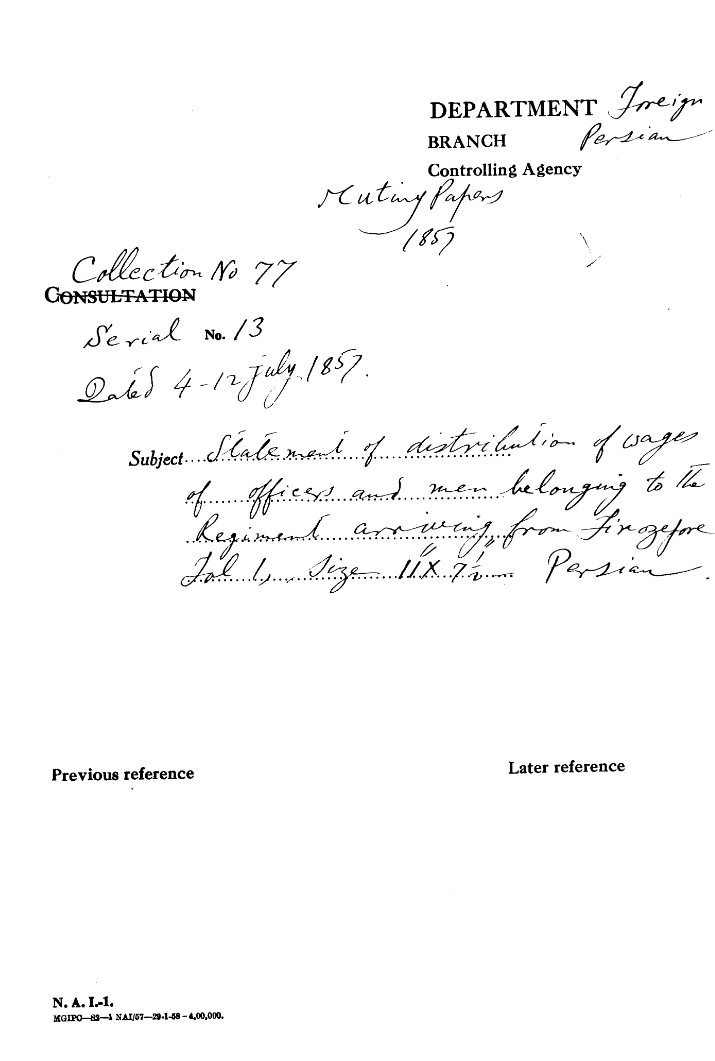 DEPARTMENT Foreign
BRANCH Persian
Controlling Agency
Mutiny Papers
1857
Collection No 77
CONSULTATION
Serial No. 13
Dated 4-12 July 1857.
Subject Statement of distribution of wages
of officers and men belonging to the
Regiment arriving from Firozepore
Fol 1, Size 11" X 7½" Persian.
Previous reference
Later reference
N. A. I.-1.
MGIPC—82—1 NAI/57—29-1-58—4,00,000.